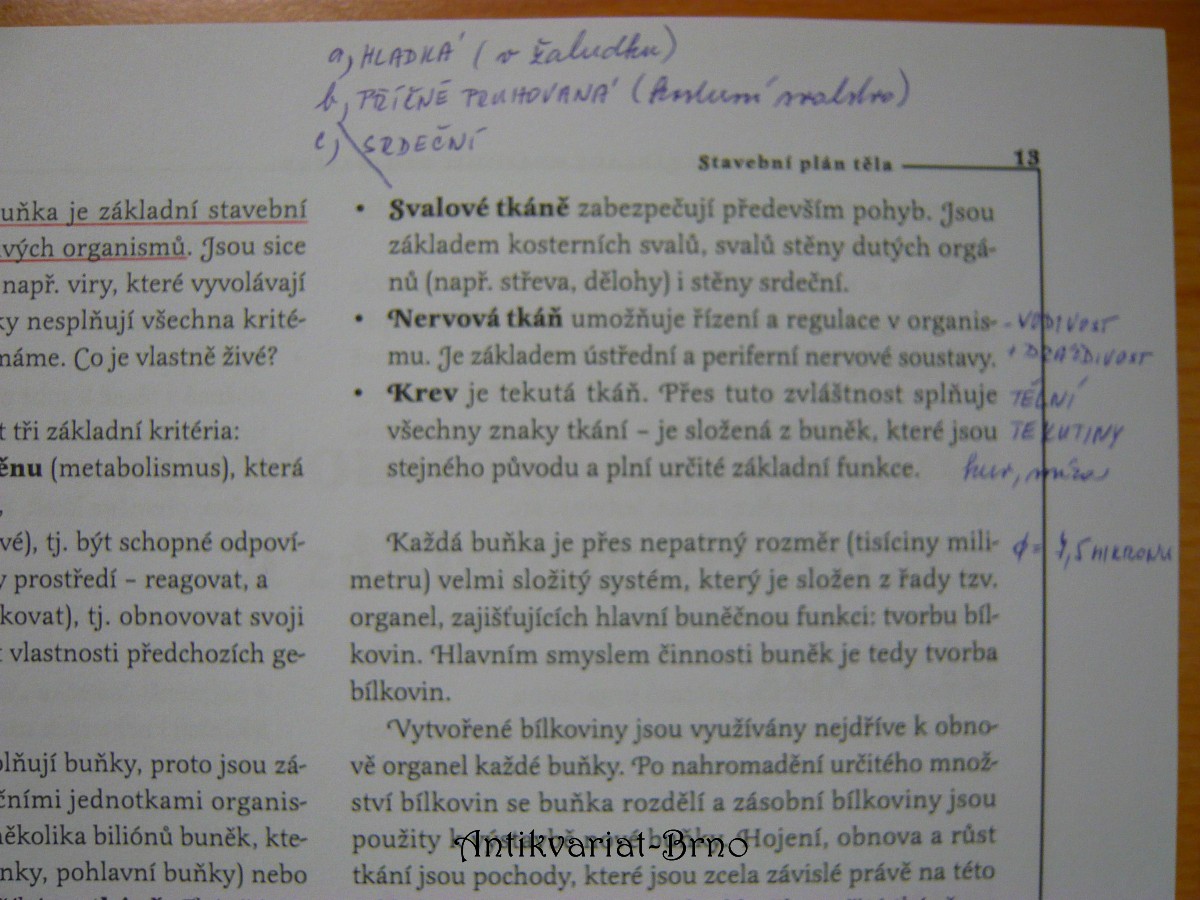 a, HLADKÁ (v žaludku)
b, PŘÍČNĚ PRUHOVANÁ (kosterní svalstvo)
c, SRDEČNÍ
Stavební plán těla 13
uňka je základní stavební
ivých organismů. Jsou sice
např. viry, které vyvolávají
ky nesplňují všechna krité-
máme. Co je vlastně živé?
t tři základní kritéria:
ěnu (metabolismus), která
,
vé), tj. být schopné odpoví-
y prostředí – reagovat, a
kovat), tj. obnovovat svoji
t vlastnosti předchozích ge-
plňují buňky, proto jsou zá-
čními jednotkami organis-
několika biliónů buněk, kte-
nky, pohlavní buňky) nebo
• Svalové tkáně zabezpečují především pohyb. Jsou
základem kosterních svalů, svalů stěny dutých orgá-
nů (např. střeva, dělohy) i stěny srdeční.
• Nervová tkáň umožňuje řízení a regulace v organis-
mu. Je základem ústřední a periferní nervové soustavy.
• Krev je tekutá tkáň. Přes tuto zvláštnost splňuje
všechny znaky tkání – je složená z buněk, které jsou
stejného původu a plní určité základní funkce.
- VODIVOST
+ DRAŽDIVOST
TĚLNÍ
TEKUTINY
krev, míza
Každá buňka je přes nepatrný rozměr (tisíciny mili-
metru) velmi složitý systém, který je složen z řady tzv.
organel, zajišťujících hlavní buněčnou funkci: tvorbu bíl-
kovin. Hlavním smyslem činnosti buněk je tedy tvorba
bílkovin.
ϕ = 7,5 MIKRONU
Vytvořené bílkoviny jsou využívány nejdříve k obno-
vě organel každé buňky. Po nahromadění určitého množ-
ství bílkovin se buňka rozdělí a zásobní bílkoviny jsou
použity k výstavbě nové buňky. Hojení, obnova a růst
tkání jsou pochody, které jsou zcela závislé právě na této
Antikvariat-Brno